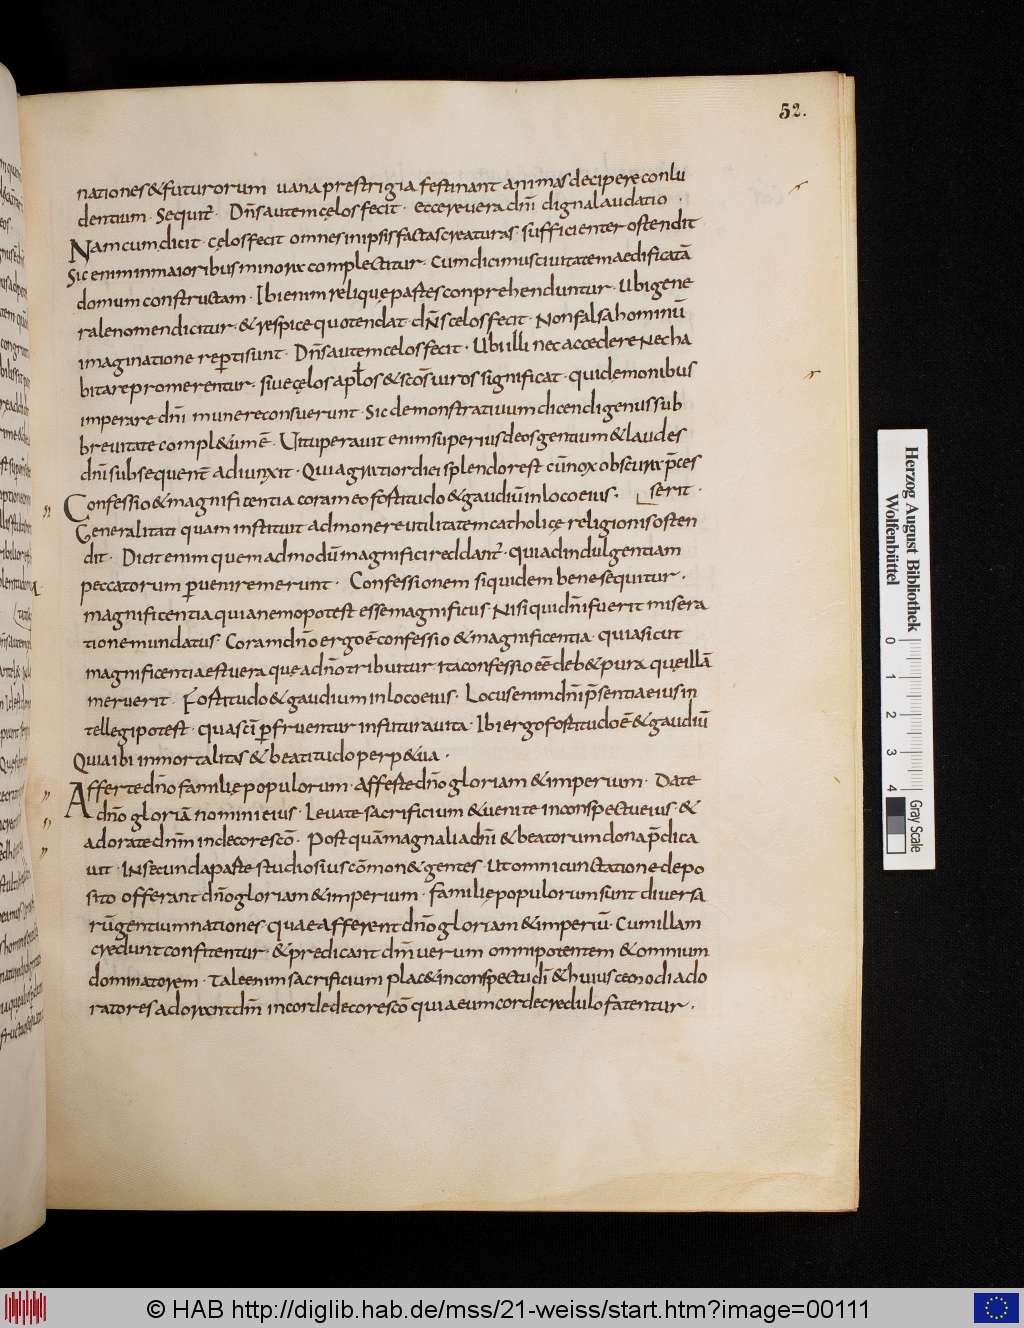 52.
nationes & futurorum uana prestrigia festinant animas decipere conlu
dentium · Sequit̄ · Dn̄s autem cęlos fecit · ecce reuera dn̄i digna laudatio ·
Nam cum dicit · cęlos fecit omnes in ipsis factas creaturas · sufficienter ostendit
Sic enim in maioribus minora complectitur · cum dicimus ciuitatem aedificatā
domum constructam · Ibi enim reliquę partes conprehenduntur · Ubi gene
rale nomen dicitur · & respice quot endat · dn̄s cęlos fecit · Non falsa hominū
imaginatione reperti sunt · Dn̄s autem celos fecit · Ubi illi nec accedere nec ha
bitare promerentur · siue cęlos aptł̄os & scōs uiros significat · qui dęmonibus
imperare dn̄i munere consuerunt · Sic demonstratiuum dicendi genus sub
breuitate compl&um ē · Uituperauit enim superius deos gentium & laudes
dn̄i subsequenẗ adiunxit · Qui a gratior dici splendor est cū nox obscura p̄ces
serit ·
Confessio & magnificentia coram eo fortitudo & gaudiū in loco eius ·
Generalitati quam instituit admonere utilitatem catholicę religionis osten
dit · Dicit enim quemadmodū magnifici reddant̄ · qui ad indulgentiam
peccatorum p̱uenire merunt · Confessionem siquidem bene sequitur ·
magnificentia quia nemo potest esse magnificus · Nisi qui dn̄i fuerit misera
tione mundatus · Coram dn̄o ergo ē confessio & magnificentia · quia sicut
magnificentia est uera que a dn̄o tribuitur ita confessio eē deb& pura quę illā
meruerit · Fortitudo & gaudium in loco eius · Locus enim dn̄i p̄sentia eius in
tellegi potest · qua sc̄i p̱fruentur in futura uita · Ibi ergo fortitudo ē & gaudiū
Quia ibi inmortalitas & beatitudo perp&ua ·
Afferte dn̄o familię populorum · afferte dn̄o gloriam & imperium · Date
dn̄o gloriā nomini eius · Leuate sacrificium & uenite in conspectu eius · &
adorate dn̄m in decore scō · Postquā magnalia dn̄i & beatorum dona p̄dica
uit · In secunda parte studiosius cōmon& gentes · Ut omni cunctatione depo
sito offerant dn̄o gloriam & imperium · familię populorum sunt diuersa
rū gentium nationes · quae afferent dn̄o gloriam & imperiū · Cum illam
credunt confitentur · & predicant dn̄m uerum omnipotentem & omnium
dominatorem · Tale enim sacrificium plac& in conspectu dī & huiuscemodi ado
ratores adorant dn̄m in corde decore scō quia eum corde credulo fatentur ·
Herzog August Bibliothek
Wolfenbüttel
0 1 2 3 4
Gray Scale
© HAB http://diglib.hab.de/mss/21-weiss/start.htm?image=00111